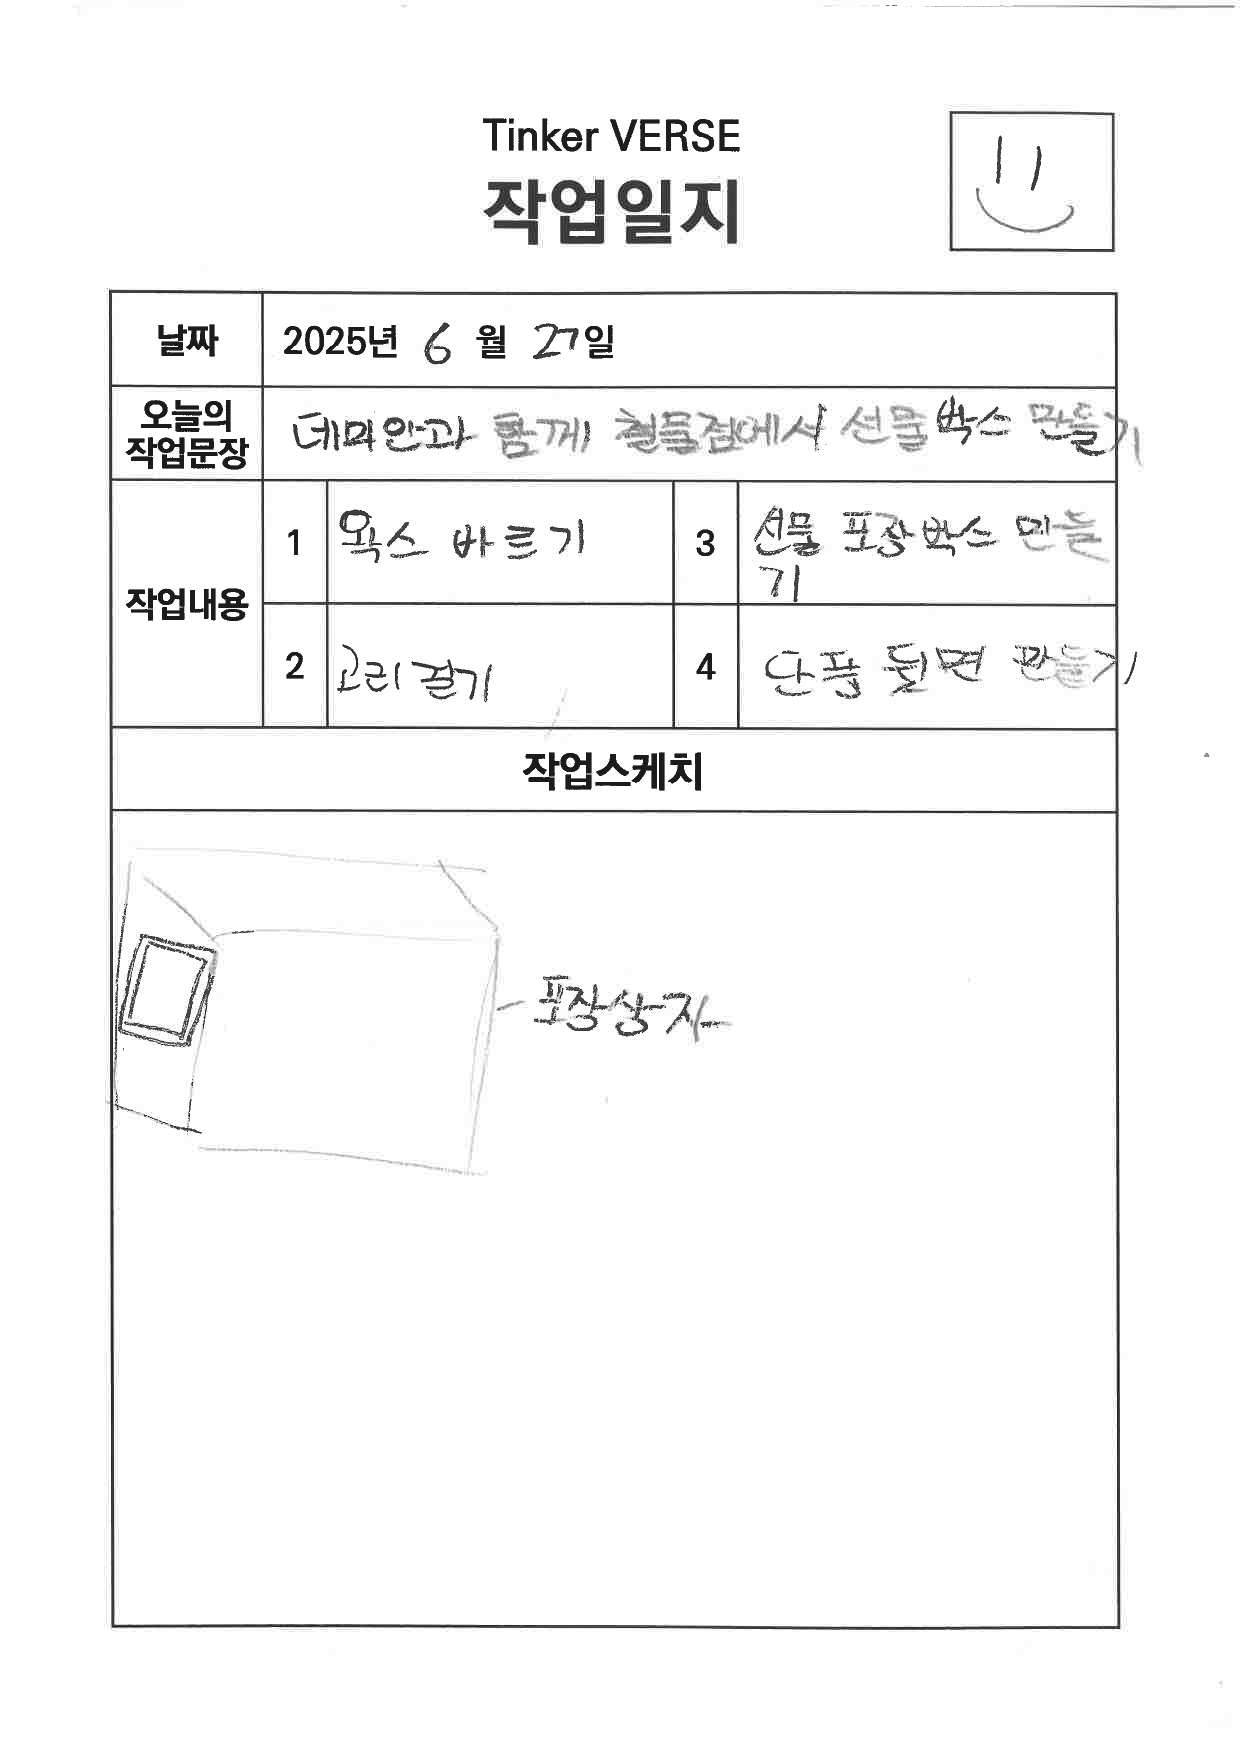 Tinker VERSE
작업일지
날짜 2025년 6월 27일
오늘의
작업문장
데미안과 함께 철물점에서 선물박스 만들기
작업내용
1 왁스 바르기
2 고리걸기
3 선물 포장박스 만들
기
4 단풍 뒷면 만들기
작업스케치
포장상자